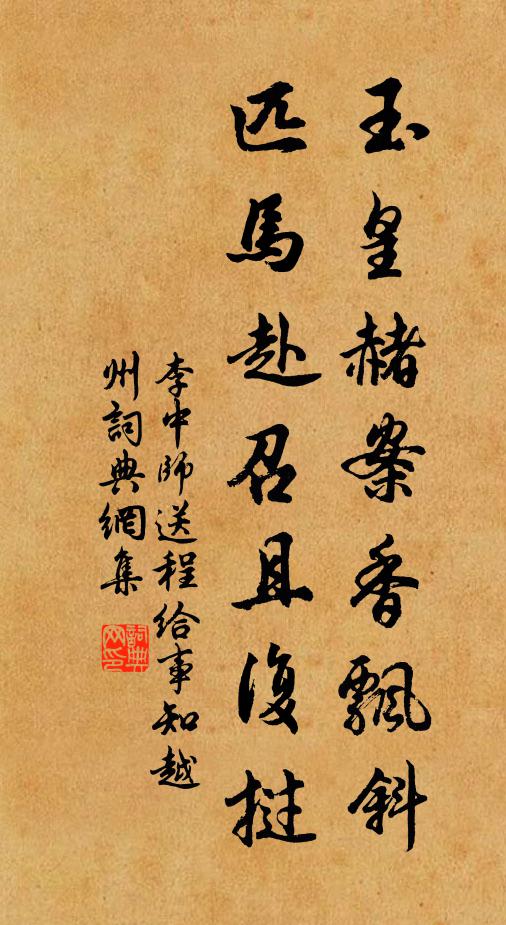 玉皇赭案香飄斜
匹馬赴召且復撻
李中師送程給事知越
州詞典網集
詞典
网印